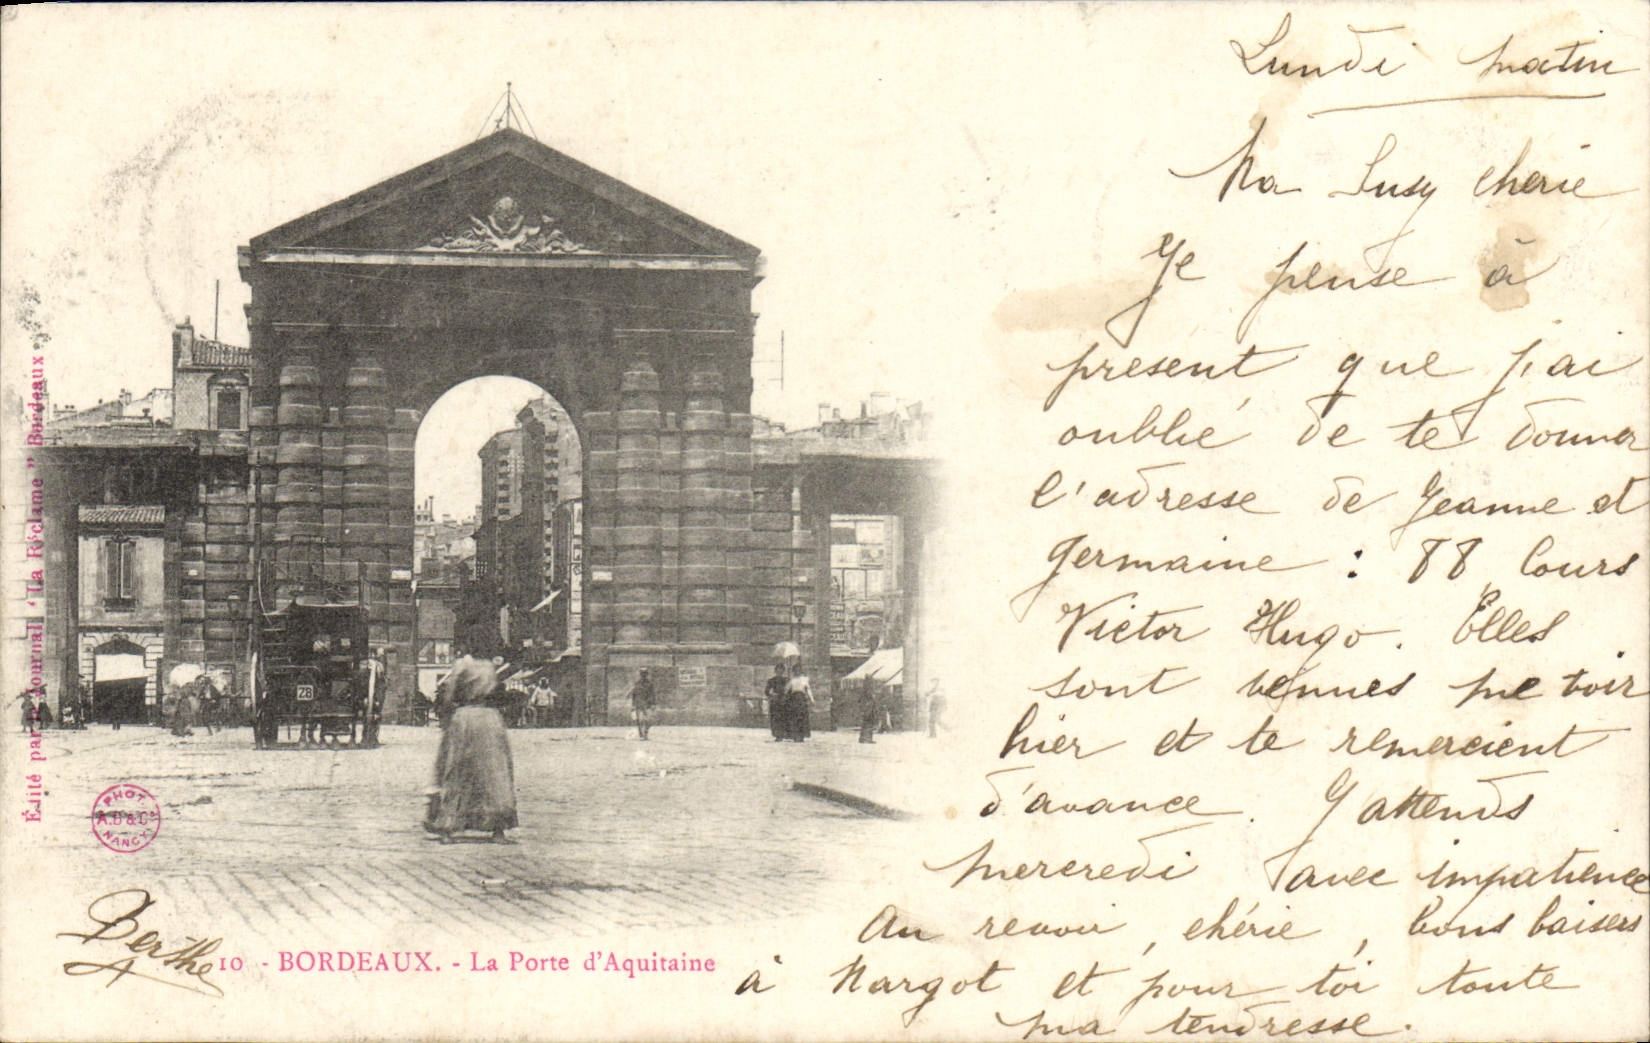 Lundi matin
Ma Susy chérie
Je pense à
présent que j'ai
oublié de te donner
l'adresse de Jeanne et
Germaine : 88 Cours
Victor Hugo. Elles
sont venues me voir
hier et te remercient
d'avance. J'attends
mercredi avec impatience
Au revoir, chérie, bons baisers
à Margot et pour toi toute
ma tendresse.
Berthe
10 - BORDEAUX. - La Porte d'Aquitaine
Édité par le Journal "La Réclame" Bordeaux
PHOT.
A.B&C
NANCY
28